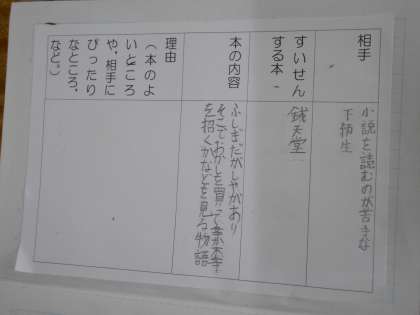 相手
小説を読むのが苦手な
下級生
すいせん
する本
銭天堂
本の内容
ふしぎだがしやがあり
そこでおかしを買って
を招くかなどを見る物語
理由
(本のよ
いところ
や、相手に
ぴったり
なところ、
など。)